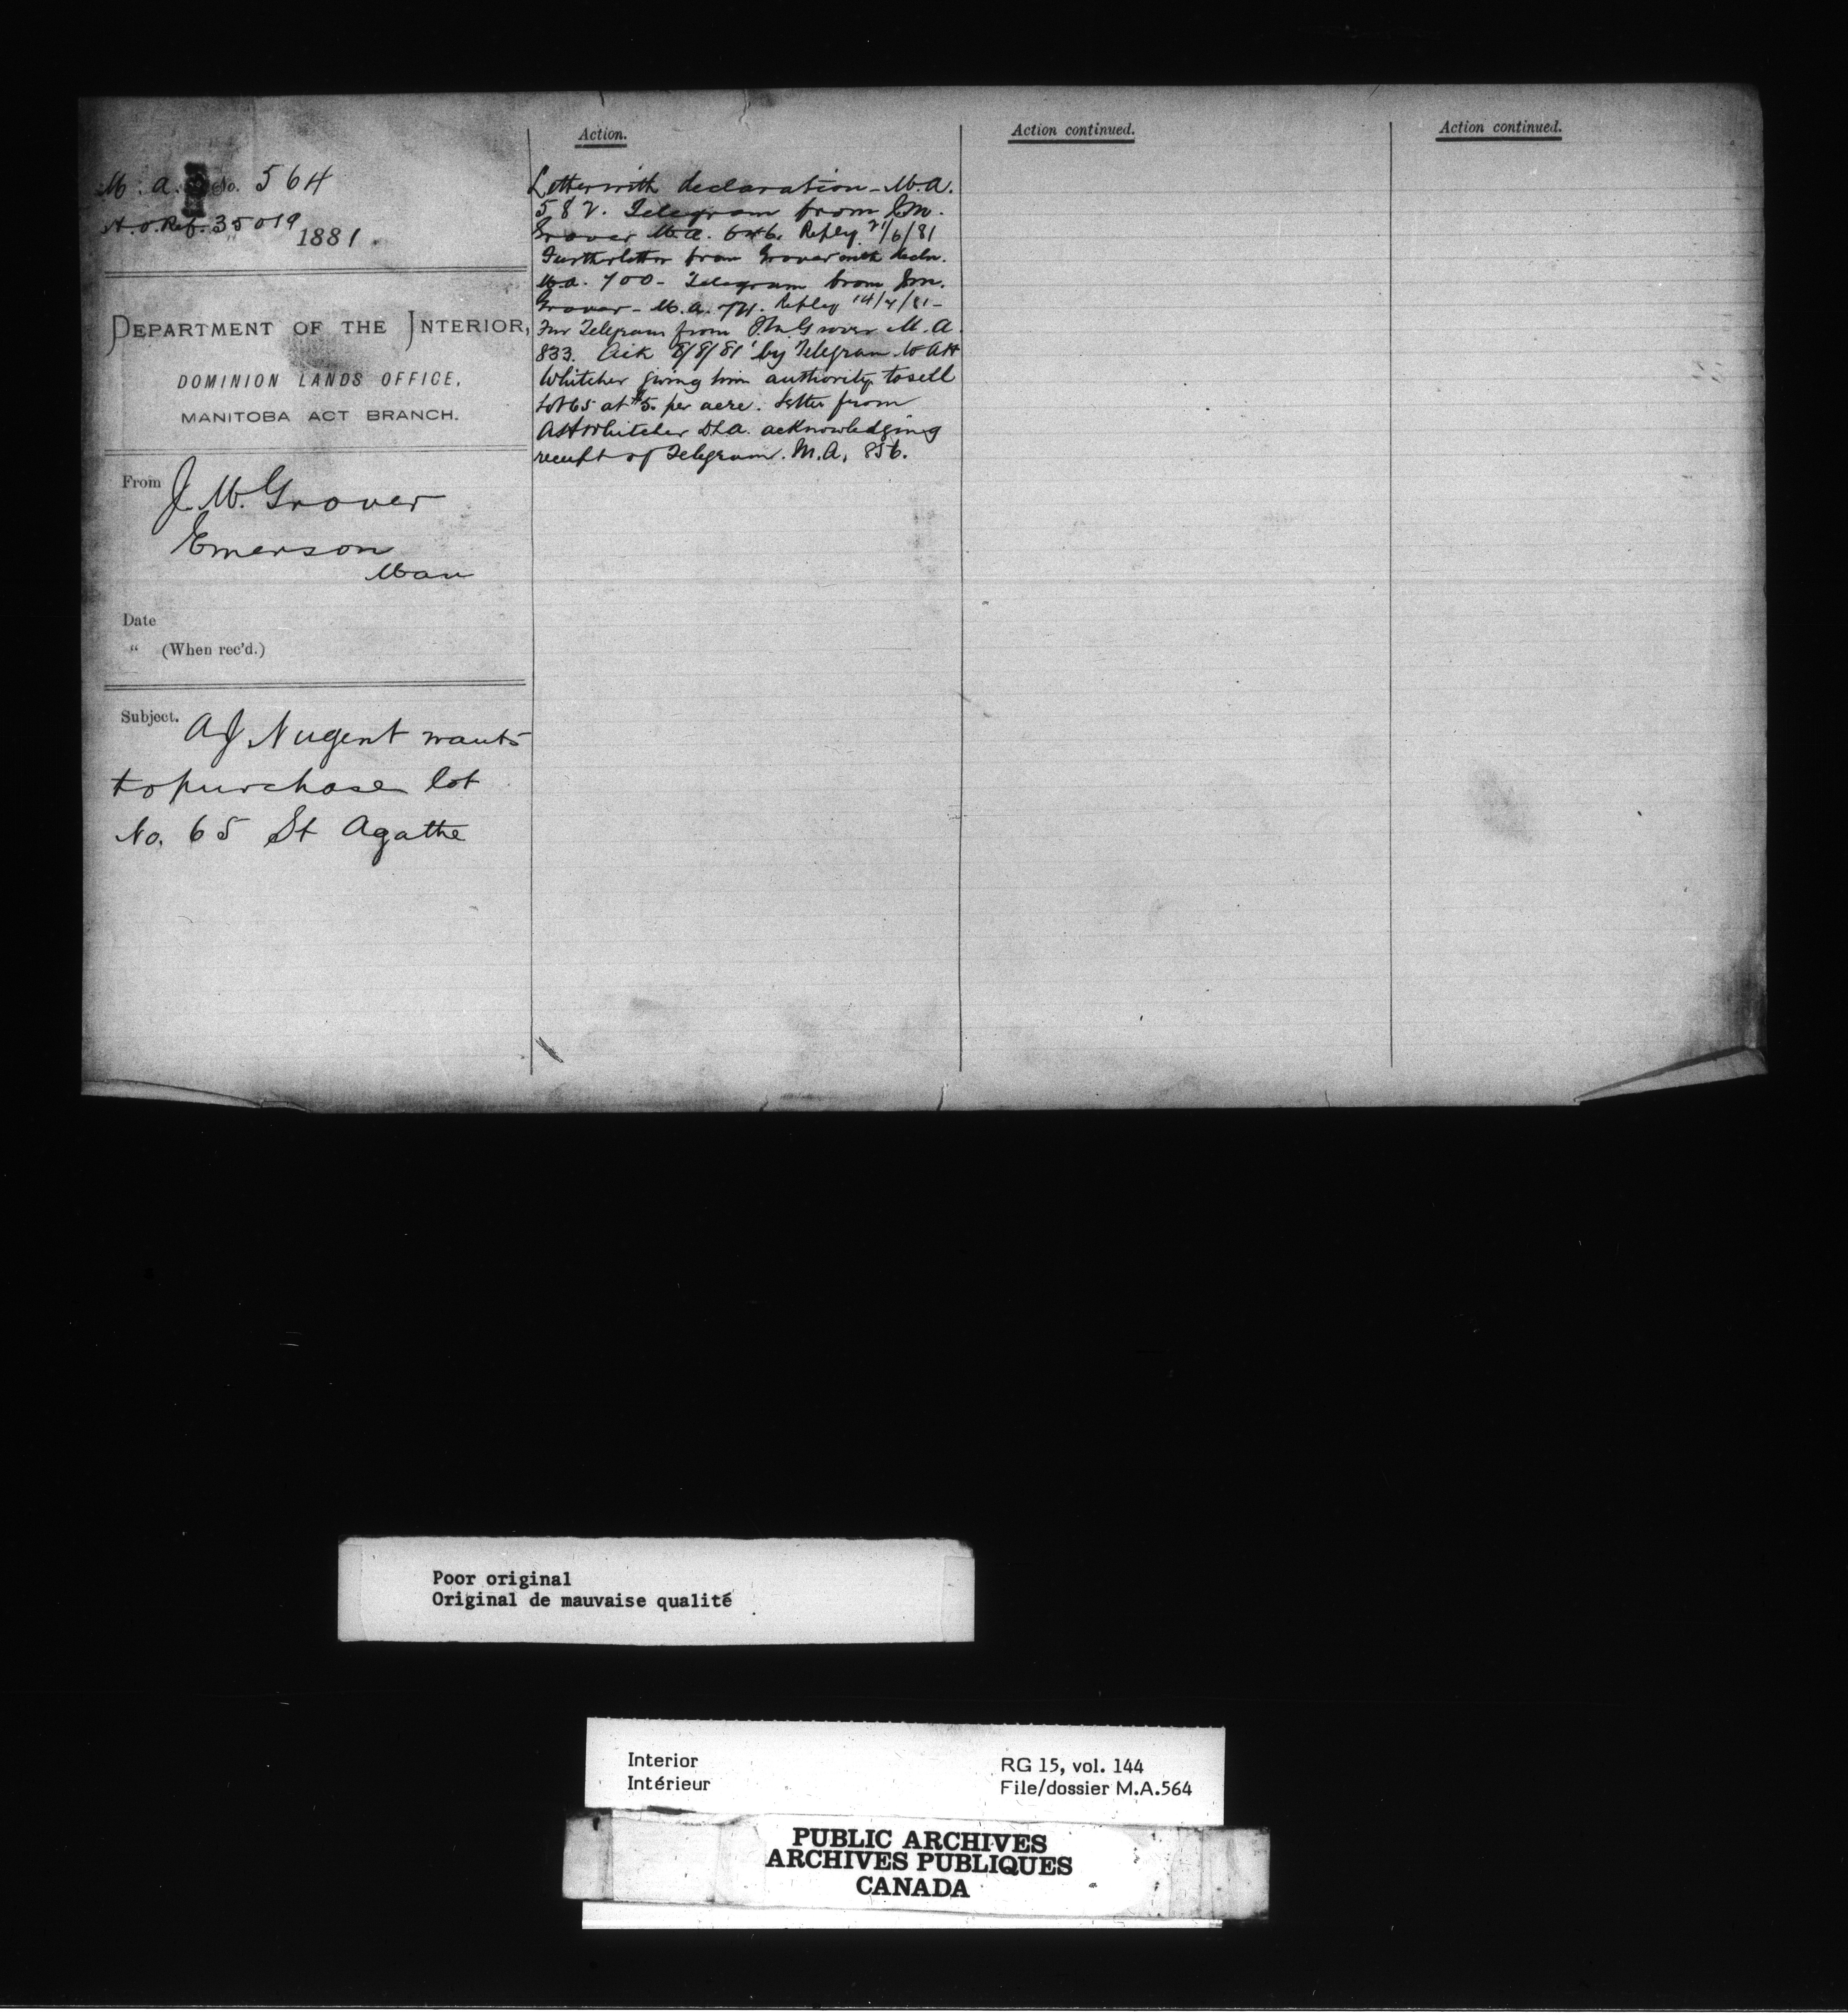 M.A. No. 564
H.O. Ref. 35019
1881
DEPARTMENT OF THE INTERIOR,
DOMINION LANDS OFFICE,
MANITOBA ACT BRANCH.
From J. M. Grover
Emerson
Man
Date
" (When rec'd.)
Subject. A J Nugent wants
to purchase lot
No. 65 St Agathe
Action.
Letter with declaration - M.A.
582. Telegram from J.M.
Grover M.A. 646. Reply 21/6/81
Further letter from Grover with decln.
M.A. 700 - Telegram from J.M.
Grover - M.A. Reply 14/7/81 -
Fur Telegram from J.M. Grover M.A.
833. Ack 8/8/81 by Telegram to AH
Whitcher giving him authority to sell
Lot 65 at $5. per acre. Letter from
AH Whitcher DLA. acknowledging
receipt of Telegram. M.A. 856.
Action continued.
Action continued.
Poor original
Original de mauvaise qualité
Interior
Intérieur
RG 15, vol. 144
File/dossier M.A.564
PUBLIC ARCHIVES
ARCHIVES PUBLIQUES
CANADA